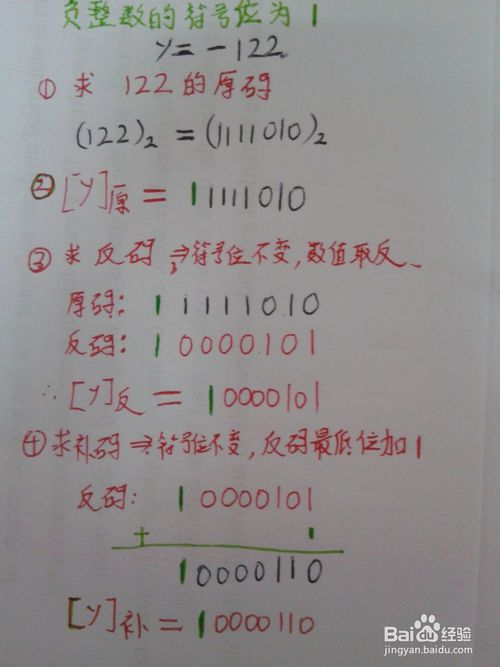 负整数的符号位为1
y = -122
① 求 122 的原码
(122)₂ = (1111010)₂
② [y]原 = 11111010
③ 求反码 ⇒ 符号位不变, 数值取反
原码: 1 1111010
反码: 1 0000101
∴ [y]反 = 10000101
④ 求补码 ⇒ 符号位不变, 反码最低位加1
反码: 1 0000101
+ 1
10000110
[y]补 = 10000110
Baidu经验
jingyan.baidu.com